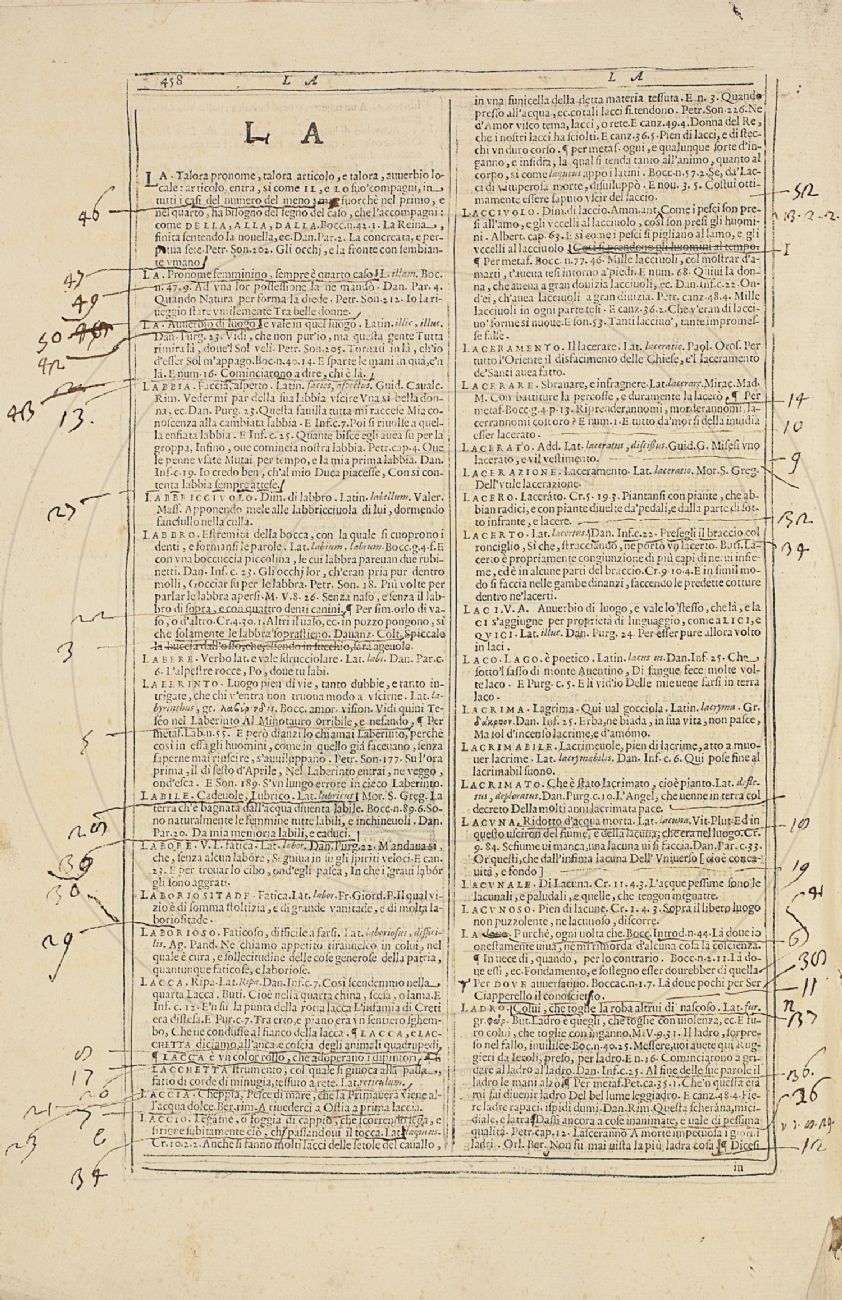 458
LA
LA
LA
LA. Talora pronome, talora articolo, e talora, auuerbio lo-
cale: articolo, entra, si come IL, e LO suo'compagni, in
tutti i casi del numero del meno, fuorchè nel primo, e
nel quarto, ha bisogno del segno del caso, che l'accompagni:
come DELLA, ALLA, DALLA. Bocc.n.41.1. La Reina,
finita sentendo la nouella, ec. Dan. Par. 2. La concreata, e per-
petua sete. Petr. Son. 202. Gli occhj, e la fronte con sembian-
te vmano
LA. Pronome femminino, sempre è quarto caso. L. illam. Boc.
n. 47.9. Ad vna lor possessione la ne mandò. Dan. Par. 4.
Quando Natura per forma la diede. Petr. Son. 212. Io la ri-
ueggio stare vmilemente Tra belle donne.
LA. Auuerbio di luogo, e vale in quel luogo. Latin. illic, illuc.
Dan. Purg. 23. Vidi, che non pur'io, ma questa gente Tutta
rimira là, doue'l Sol veli. Petr. Son. 205. Tornati in là, ch'io
d'esser Sol m'appago. Bocc.n.40.14. E sparte le mani in quà, e'n
là. E num. 16. Cominciarono a dire, chi è là.
LABBIA. Faccia, aspetto. Latin. facies, aspectus. Guid. Caualc.
Rim. Veder mi par della sua labbia vscire Vna sì bella don-
na, ec. Dan. Purg. 23. Questa fauilla tutta mi raccese Mia co-
noscenza alla cambiata labbia. E Inf.c.7. Poi si riuolse a quel-
la enfiata labbia. E Inf. c. 25. Quante bisce egli auea su per la
groppa, Infino, oue comincia nostra labbia. Petr. cap. 4. Oue
le penne vsate Mutai per tempo, e la mia prima labbia. Dan.
Inf. c. 19. Io credo ben, ch'al mio Duca piacesse, Con sì con-
tenta labbia sempre attese.
LABBRICCIVOLO. Dim. di labbro. Latin. labellum. Valer.
Mass. Apponendo mele alle labbricciuola di lui, dormendo
fanciullo nella culla.
LABBRO. Estremità della bocca, con la quale si cuoprono i
denti, e formansi le parole. Lat. labium, labrum. Bocc.g.4.f. E
con vna boccuccia piccolina, le cui labbra pareuan due rubi-
netti. Dan. Inf. c. 23. Gli occhj lor, ch'eran pria pur dentro
molli, Gocciar su per le labbra. Petr. Son. 18. Più volte per
parlar le labbra apersi. M. V. 8. 26. Senza naso, e senza il lab-
bro di sopra, e con quattro denti canini. ¶ Per sim. orlo di va-
so, o d'altro. Cr. 4. 30. 1. Altri il uaso, ec. in pozzo pongono, sì
che solamente le labbra soprastieno. Dauanz. Colt. Spiccale
la buccia dall'osso, che, essendo in succhio, sarà ageuole.
LABERE. Verbo lat. e vale sdrucciolare. Lat. labi. Dan. Par. c.
6. l'alpestre rocce, Po, doue tu labi.
LABERINTO. Luogo pien di vie, tanto dubbie, e tanto in-
trigate, che chi v'entra non truoua modo a vscirne. Lat. la-
byrinthus, gr. λαβύρινθος. Bocc. amor. vision. Vidi quini Te-
seo nel Laberinto Al Minotauro orribile, e nefando. ¶ Per
metaf. Lab. n. 55. E però dianzi lo chiamai Laberinto, perchè
così in essa gli huomini, come in quello già faceuano, senza
saperne mai riuscire, s'auuiluppano. Petr. Son. 177. Su l'ora
prima, il dì sesto d'Aprile, Nel Laberinto entrai, ne veggo,
ond'esca. E Son. 189. S'vn lungo errore in cieco Laberinto.
LABILE. Cadeuole, Lubrico. Lat. lubricus. Mor. S. Greg. La
terra ch'è bagnata dall'acqua diuenta labile. Bocc. n. 89. 6. So-
no naturalmente le femmine tutte labili, e inchineuoli. Dan.
Par. 20. Da mia memoria labili, e caduci.
LABORE. V. L. fatica. Lat. labor. Dan. Purg. 22. M'andaua sì,
che, senza alcun labore, Si guiua in su gli spiriti veloci. E can.
23. E per trouar lo cibo, ond'egli pasca, In che i graui labór
gli sono aggrati.
LABORIOSITADE. Fatica. Lat. labor. Fr. Giord. P. Il qual vi-
zio è di somma stoltizia, e di grande vanitade, e di molta la-
boriositade.
LABORIOSO. Faticoso, difficile a farsi. Lat. laboriosus, diffici-
lis. Ag. Pand. Ne chiamo appetito tirannesco in colui, nel
quale è cura, e sollecitudine delle cose generose della patria,
quantunque faticose, e laboriose.
LACCA. Ripa. Lat. Ripa. Dan. Inf. c. 7. Così scendemmo nella
quarta Lacca. Buti. Cioè nella quarta china, scesa, o lama. E
Inf. c. 12. E'n su la punta della rotta lacca L'infamia di Creti
era distesa. E Pur. c. 7. Tra erto, e piano era vn sentiero sghem-
bo, Che ne condusse al fianco della lacca. ¶ LACCA, e LAC-
CHETTA diciamo all'anca e coscia degli animali quadrupedi.
¶ LACCA è vn color rosso, che adoperano i dipintori.
LACCHETTA strumento, col quale si giuoca alla palla,
fatto di corde di minugia, tessuto a rete. Lat. reticulum.
LACCIA. Cheppia, Pesce di mare, che la Primauera viene al-
l'acqua dolce. Ber. rim. A riuederci a Ostia a prima laccia.
LACCIO. Legame, o foggia di cappio, che scorrendo lega, e
strigne subitamente ciò, che passandoui il tocca. Lat. laqueus.
Cr. 10. 2. 2. Anche si fanno molti lacci delle setole del cauallo,
in vna funicella della detta materia tessuta. E n. 3. Quando
presso all'acqua, ec. cotali lacci si tendono. Petr. Son. 226. Ne
d'Amor visco tema, lacci, o rete. E canz. 49. 4. Donna del Re,
che i nostri lacci ha sciolti. E canz. 36. 5. Pien di lacci, e di stec-
chi vn duro corso. ¶ per metaf. ogni, e qualunque sorte d'in-
ganno, e insidia, la qual si tenda tanto all'animo, quanto al
corpo, si come laqueus appo i latini. Bocc. n. 57. 2. Se, da'Lac-
ci di vituperosa morte, disuiluppò. E nou. 3. 5. Costui otti-
mamente essere saputo vscir del laccio.
LACCIVOLO. Dim. di laccio. Amm. ant. Come i pesci son pre-
si all'amo, e gli vccelli al lacciuolo, così son presi gli huomi-
ni. Albert. cap. 63. E si come i pesci si pigliano al lamo, e gli
vccelli al lacciuolo Così si prendono gli huomini al tempo.
¶ Per metaf. Bocc. n. 77. 46. Mille lacciuoli, col mostrar d'a-
marti, t'aueua tesi intorno a'piedi. E num. 68. Quiui la don-
na, che aueua a gran douizia lacciuoli, ec. Dan. Inf. c. 22. On-
d'ei, ch'auea lacciuoli a gran diuizia. Petr. canz. 48. 4. Mille
lacciuoli in ogni parte tesi. E canz. 36. 2. Che v'eran di lacciuo'
forme sì nuoue. E son. 53. Tanti lacciuo', tante impromes-
se false.
LACERAMENTO. Il lacerare. Lat. laceratio. Paol. Oros. Per
tutto l'Oriente il disfacimento delle Chiese, e'l laceramento
de'Santi auea fatto.
LACERARE. Sbranare, e infragnere. Lat. lacerare. Mirac. Mad.
M. Con battiture la percosse, e duramente la lacerò. ¶ Per
metaf. Bocc. g. 4. p. 13. Riprenderannomi, morderannomi, la-
cerrannomi costoro? E num. 1. E tutto da'morsi della inuidia
esser lacerato.
LACERATO. Add. Lat. laceratus, discissus. Guid. G. Misesi vno
lacerato, e vil vestimento.
LACERAZIONE. Laceramento. Lat. laceratio. Mor. S. Greg.
Dell'vtule lacerazione.
LACERO. Lacerato. Cr. 5. 19. 3. Piantansi con piante, che ab-
bian radici, e con piante diuelte da'pedali, e dalla parte di sot-
to infrante, e lacere.
LACERTO. Lat. lacertus. Dan. Inf. c. 22. Presegli il braccio col
ronciglio, Sì che, stracciando, ne portò vn lacerto. Buti. La-
certo è propriamente congiunzione di più capi di nerui insie-
me, ed è in alcune parti del braccio. Cr. 9. 10. 4. E in simil mo-
do si faccia nelle gambe dinanzi, faccendo le predette cotture
dentro ne'lacerti.
LACI. V. A. Auuerbio di luogo, e vale lo'stesso, che là, e la
CI s'aggiugne per proprietà di linguaggio, come a LICI, e
QVICI. Lat. illuc. Dan. Purg. 24. Per esser pure allora volto
in laci.
LACO. LAGO. è poetico. Latin. lacus us. Dan. Inf. 25. Che
sotto'l sasso di monte Auentino, Di sangue fece molte vol-
te laco. E Purg. c. 5. E lì vid'io Delle mie uene farsi in terra
laco.
LACRIMA. Lagrima. Qui ual gocciola. Latin. lacryma. Gr.
δάκρυον. Dan. Inf. 25. Erba, ne biada, in sua vita, non pasce,
Ma sol d'incenso lacrime, e d'amómo.
LACRIMABILE. Lacrimeuole, pien di lacrime, atto a muo-
uer lacrime. Lat. lacrymabilis. Dan. Inf. c. 6. Qui pose fine al
lacrimabil suono.
LACRIMATO. Che è stato lacrimato, cioè pianto. Lat. defle-
tus, deploratus. Dan. Purg. c. 10. L'Angel, che uenne in terra col
decreto Della molti anni lacrimata pace.
LACVNA. Ridotto d'acqua morta. Lat. lacuna. Vit. Plut. Ed in
questo usciron del fiume, e della lacuna, che era nel luogo. Cr.
9. 84. Se fiume ui manca, una lacuna ui si faccia. Dan. Par. c. 33.
Or questi, che dall'infima lacuna Dell'Vniuerso [cioè conca-
uità, e fondo]
LACVNALE. Di Lacuna. Cr. 11. 43. L'acque pessime sono le
lacunali, e paludali, e quelle, che tengon mignatte.
LACVNOSO. Pien di lacune. Cr. 1. 4. 3. Sopra il libero luogo
non puzzolente, ne lacunoso, discorre.
LA doue. Purchè, ogni volta che. Bocc. Introd. n. 44. Là doue io
onestamente uiua, ne mi rimorda d'alcuna cosa la coscienza.
¶ In uece di, quando, per lo contrario. Bocc. n. 2. 11. Là do-
ue essi, ec. Fondamento, e sostegno esser dourebber di quella
Per DOVE auuersatiuo. Boccac. n. 1. 7. Là doue pochi per Ser
Ciapperello il conoscieno.
LADRO. Colui, che toglie la roba altrui di nascoso. Lat. fur.
gr. φώρ. But. Ladro è quegli, che toglie con uiolenza, ec. E fur-
to colui, che toglie con inganno. M. V. 9. 31. Il ladro, sorpre-
so nel fallo, inuilisce. Bocc. n. 40. 25. Messere, uoi auete qui Rug-
gieri da Ieroli, preso, per ladro. E n. 16. Cominciarono a gri-
dare al ladro al ladro. Dan. Inf. c. 25. Al fine delle sue parole il
ladro le mani alzò. ¶ Per metaf. Pet. ca. 35. 1. Che'n questa età
mi fai diuenir ladro Del bel lume leggiadro. E canz. 48. 4. Fie-
re ladre rapaci, ispidi dumi. Dan. Rim. Questa scherana, mici-
diale, e latra. Dassi ancora a cose inanimate, e uale di pessima
qualità. Petr. cap. 12. Lasceranno A morte impetuosa i giorni
ladri. Orl. Ber. Non fu mai uista la più ladra cosa. ¶ Dicesi
in
46
47
49
50
42
43
13.
27
22
3
5
20
36
30
29
17
20
21
23
34
52
13. 2. 2.
1
14
10
9
32
34
18
19
6
11
37
36.
26
12